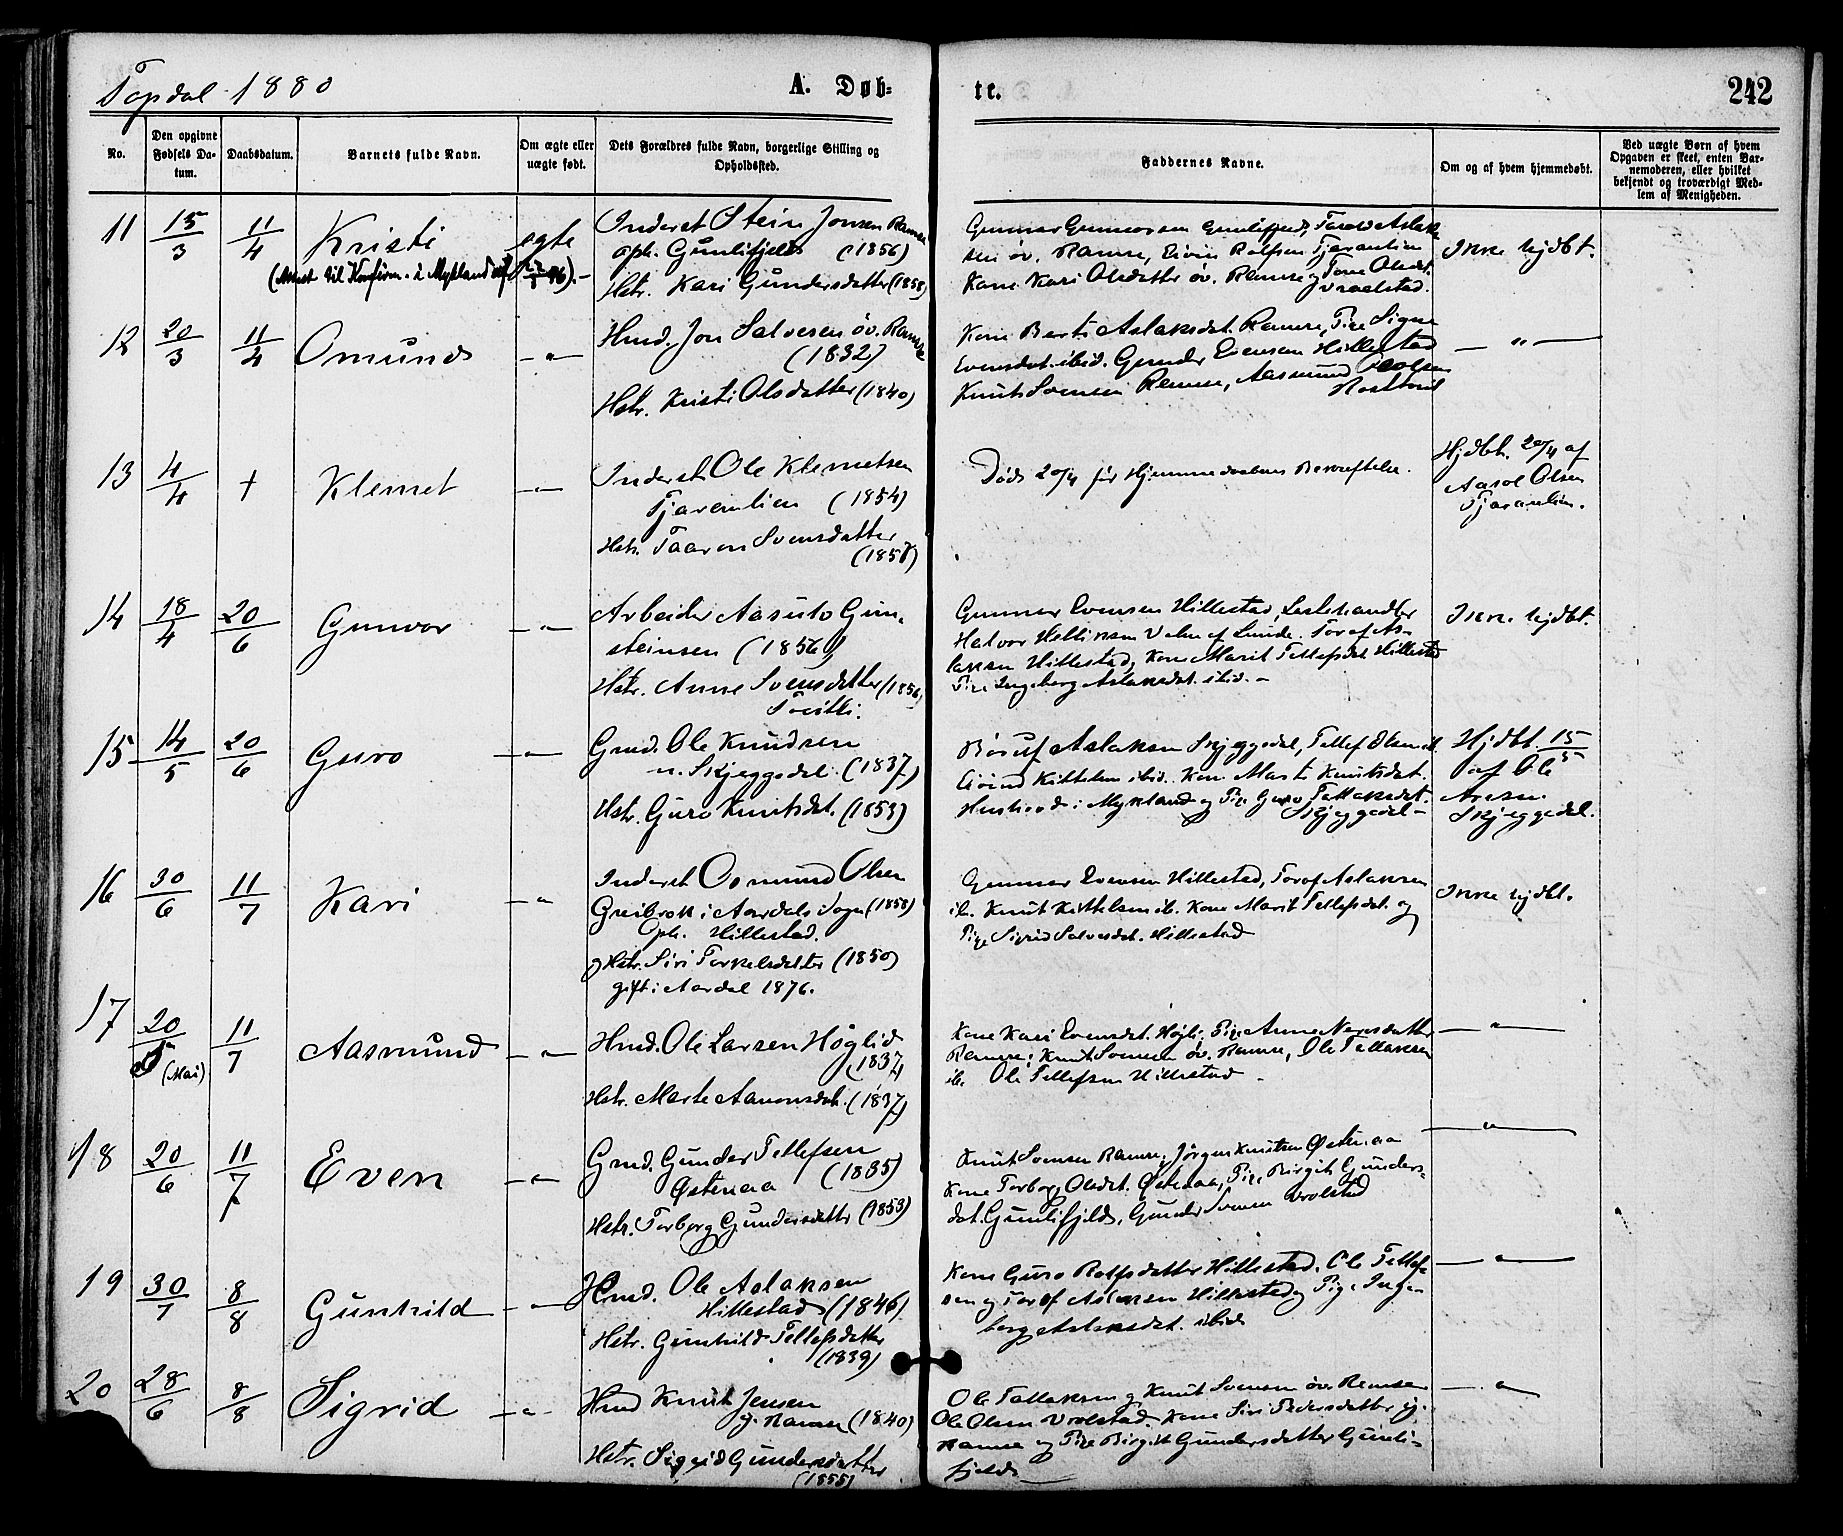 Topdal 1880
A. Døb-
te.
242
No.
Den opgivne Fødsels Da-
tum.
Daabsdatum.
Barnets fulde Navn.
Om ægte eller
uægte født.
Dets Forældres fulde Navn, borgerlige Stilling og
Opholdssted.
Faddernes Navne.
Om og af hvem hjemmedøbt.
Ved uægte Børn af hvem
Opgaven er skeet, enten Bar-
nemoderen, eller hvilket
bekjendt og troværdigt Med-
lem af Menigheden.
11 15/3 11/4 Kristi ægte
Inderst Stein Jonsen Ramse
oph. Gunlifjeld (1856)
Hstr. Kari Gundersdatter (1858)
Gunnar Gunnarsen Gunlifjeld, Aslak-
sen øv. Ramse, Eivin Rolfsen Tjaranlien
Kone Kari Olsdatter øv. Ramse og Tone Olsdt.
Vraalstad.
Ikke hjdbt.
12 20/3 11/4 Omund - " -
Hmd. Jon Salvesen øv. Ramse
(1832)
Hstr. Kristi Olsdatter (1840)
Kone Berti Aslaksdat. Ramse, Pige Signe
Evensdat. ibid. Gunder Evensen Hillestad
Knut Svensen Ramse, Aasmund
- " -
13 4/4 + Klemet - " -
Inderst Ole Klemetsen
Tjaranlien (1854)
Hstr. Taaron Svensdatter
(1857)
Død 20/4 før Hjemmedaabens Bekræftelse.
Hjdbt. 20/4 af
Olsen
Tjaranlien.
14 18/4 20/6 Gunvor - " -
Arbeider Aasulv Gun-
steinsen (1856)
Hstr. Anne Svensdatter (1856)
Tveitli.
Gunnar Evensen Hillestad,
Halvor Lunde. Torof As-
laksen Hillestad, Kone Marit Tellefsdat. Hillestad
Pige Ingeborg Aslaksdat. ibid. -
Ikke hjdbt.
15 14/5 20/6 Guro - " -
Gmd. Ole Knudsen
n. Skjeggedal. (1837)
Hstr. Guro Knutsdat. (1853)
Aslaksen Skjeggedal, Tellef Olsen ib.
Eivind Kittelsen ibid. Kone Marte Knutsdat.
i Mykland og Pige Guro Tallaksdat.
Skjeggedal -
Hjdbt. 15/5
af Ole
Skjeggedal.
16 30/6 11/7 Kari - " -
Inderst Osmund Olsen
Greibrok i Aardals Sogn (1858)
oph. Hillestad.
og Hstr. Siri Torkelsdatter (1850)
gift i Aardal 1876.
Gunnar Evensen Hillestad, Torof Aslaksen
ib. Knut Kittelsen ib. Kone Marit Tellefsdat. og
Pige Sigrid Salvesdat. Hillestad
Ikke hjdbt.
17 20/5 (Mai) 11/7 Aasmund - " -
Hmd. Ole Larsen Høglid
(1837)
Hstr. Marte Aanonsdat. (1837)
Kone Kari Evensdat. Høgli, Pige Anne
Ramse, Knut Svensen øv. Ramse, Ole Tallaksen
ib. Ole Tellefsen Hillestad -
- " -
18 20/6 11/7 Even - " -
Gmd. Gunder Tellefsen
Østenaa (1835)
Hstr. Torborg Gundersdatter (1853)
Knut Svensen Ramse, Jørgen Knutsen Østenaa
Kone Torborg Olsdat. Østenaa, Pige Birgit Gunders-
dat. Gunlifjeld, Gunder Svensen Vrolstad
- " -
19 30/7 8/8 Gunhild - " -
Hmd. Ole Aslaksen
Hillestad (1846)
Hstr. Gunhild Tellefsdatter
(1839)
Kone Guro Rolfsdatter Hillestad. Ole Tellef-
sen og Torof Aslaksen Hillestad og Pige Inge-
borg Aslaksdat. ibid
- " -
20 28/6 8/8 Sigrid - " -
Hmd Knut Jensen
y. Ramse (1840)
Hstr. Sigrid Gundersdatter
(1855)
Ole Tallaksen og Knut Svensen øv. Ramse
Ole Olsen Vrolstad. Kone Siri Pedersdatter y.
Ramse og Pige Birgit Gundersdatter Gunli-
fjeld
- " -